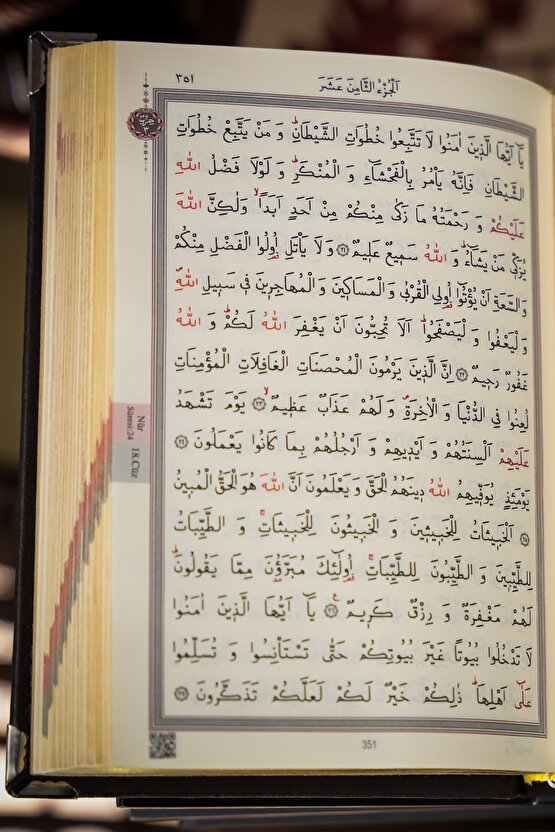 ٣٥١ اَلْجُزْءُ الثَّامِنَ عَشَرَ
يَٓا اَيُّهَا الَّذ۪ينَ اٰمَنُوا لَا تَتَّبِعُوا خُطُوَاتِ الشَّيْطَانِۜ وَ مَنْ يَتَّبِعْ خُطُوَاتِ
الشَّيْطَانِ فَاِنَّهُ يَأْمُرُ بِالْفَحْشَٓاءِ وَ الْمُنْكَرِۜ وَ لَوْلَا فَضْلُ اللّٰهِ
عَلَيْكُمْ وَ رَحْمَتُهُ مَا زَكٰى مِنْكُمْ مِنْ اَحَدٍ اَبَداًۙ وَلٰكِنَّ اللّٰهَ
يُزَكّ۪ي مَنْ يَشَٓاءُۜ وَ اللّٰهُ سَم۪يعٌ عَل۪يمٌ ﴿٢١﴾ وَ لَا يَأْتَلِ اُو۬لُوا الْفَضْلِ مِنْكُمْ
وَ السَّعَةِ اَنْ يُؤْتُٓوا اُو۬لِي الْقُرْبٰى وَ الْمَسَاك۪ينَ وَ الْمُهَاجِر۪ينَ ف۪ي سَب۪يلِ اللّٰهِۖ
وَ لْيَعْفُوا وَ لْيَصْفَحُواۜ اَلَا تُحِبُّونَ اَنْ يَغْفِرَ اللّٰهُ لَكُمْۜ وَ اللّٰهُ
غَفُورٌ رَح۪يمٌ ﴿٢٢﴾ اِنَّ الَّذ۪ينَ يَرْمُونَ الْمُحْصَنَاتِ الْغَافِلَاتِ الْمُؤْمِنَاتِ
لُعِنُوا فِي الدُّنْيَا وَ الْاٰخِرَةِۖ وَ لَهُمْ عَذَابٌ عَظ۪يمٌۙ ﴿٢٣﴾ يَوْمَ تَشْهَدُ
عَلَيْهِمْ اَلْسِنَتُهُمْ وَ اَيْد۪يهِمْ وَ اَرْجُلُهُمْ بِمَا كَانُوا يَعْمَلُونَ ﴿٢٤﴾
يَوْمَئِذٍ يُوَفّ۪يهِمُ اللّٰهُ د۪ينَهُمُ الْحَقَّ وَ يَعْلَمُونَ اَنَّ اللّٰهَ هُوَ الْحَقُّ الْمُب۪ينُ
﴿٢٥﴾ اَلْخَب۪يثَاتُ لِلْخَب۪يث۪ينَ وَ الْخَب۪يثُونَ لِلْخَب۪يثَاتِۚ وَ الطَّيِّبَاتُ
لِلطَّيِّب۪ينَ وَ الطَّيِّبُونَ لِلطَّيِّبَاتِۚ اُو۬لٰٓئِكَ مُبَرَّؤُ۫نَ مِمَّا يَقُولُونَۜ
لَهُمْ مَغْفِرَةٌ وَ رِزْقٌ كَر۪يمٌ۟ ﴿٢٦﴾ يَٓا اَيُّهَا الَّذ۪ينَ اٰمَنُوا
لَا تَدْخُلُوا بُيُوتاً غَيْرَ بُيُوتِكُمْ حَتّٰى تَسْتَأْنِسُوا وَ تُسَلِّمُوا
عَلٰٓى اَهْلِهَاۜ ذٰلِكُمْ خَيْرٌ لَكُمْ لَعَلَّكُمْ تَذَكَّرُونَ ﴿٢٧﴾
Nûr
Sûresi:24
18.Cüz
351